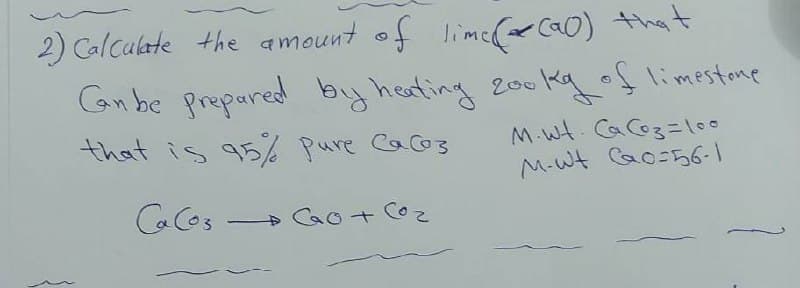 2) Calculate the amount of lime(CaO) that
Can be prepared by heating 200 kg of limestone
that is 95% pure CaCO3 M.wt. CaCO3=100
M-wt CaO=56.1
CaCO3 → CaO + CO2